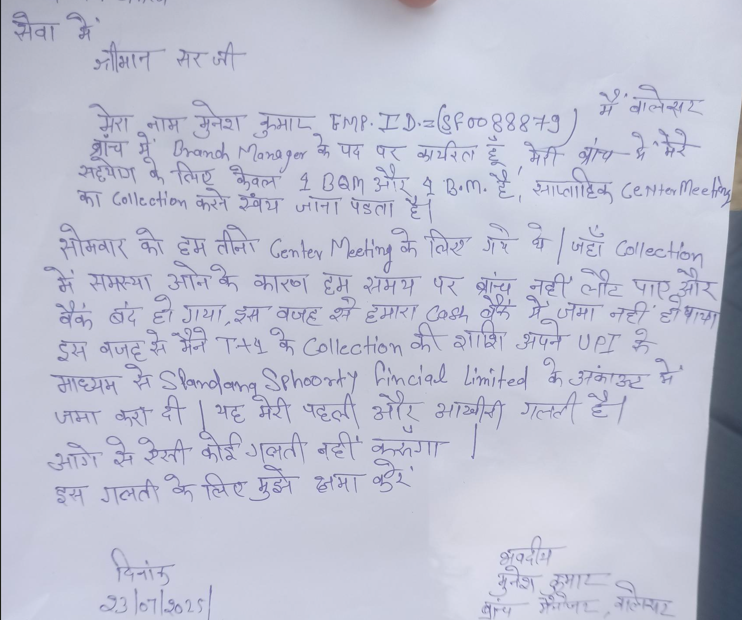 सेवा में
श्रीमान सर जी
मेरा नाम मुनेश कुमार EMP. I D.=(SF0088879) मैं बालेसर
ब्रांच में Branch Manager के पद पर कार्यरत हूँ, मेरी ब्रांच में मेरे
सहयोग के लिए केवल 1 BQM और 1 B.M. है, साप्ताहिक CenterMeeting
का Collection करने स्वयं जाना पड़ता है।
सोमवार को हम तीनो Center Meeting के लिए गये थे | जहाँ Collection
में समस्या आने के कारण हम समय पर ब्रांच नहीं लौट पाए और
बैंक बंद हो गया, इस वजह से हमारा Cash बैंक में जमा नहीं हो पाया
इस वजह से मैंने T+1 के Collection की राशि अपने UPI के
माध्यम से Spandang Sphoorty Fincial Limited के अकाउंट में
जमा करा दी | यह मेरी पहली और आखीरी गलती है।
आगे से ऐसी कोई गलती नहीं करूंगा |
इस गलती के लिए मुझे क्षमा करें
दिनांक
23/07/2025|
भवदीय
मुनेश कुमार
ब्रांच मैनेजर, बालेसर